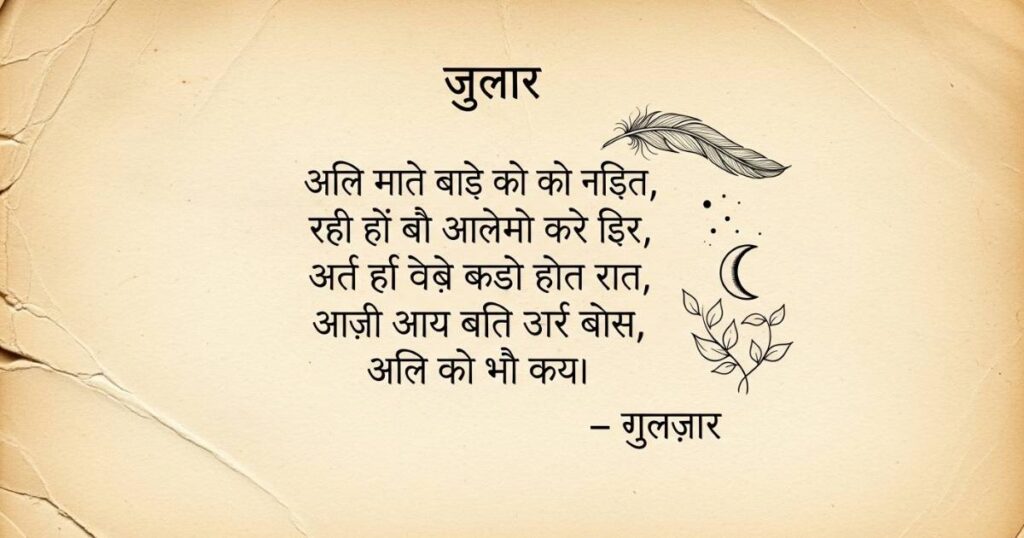 जुलार
अलि माते बाड़े को को नड़ित,
रही हों बौ आलेमो करे ड़िर,
अर्त र्हा वेब़े कडो होत रात,
आज़ी आय बति उार्र बोस,
अलि को भौ कय।
– गुलज़ार